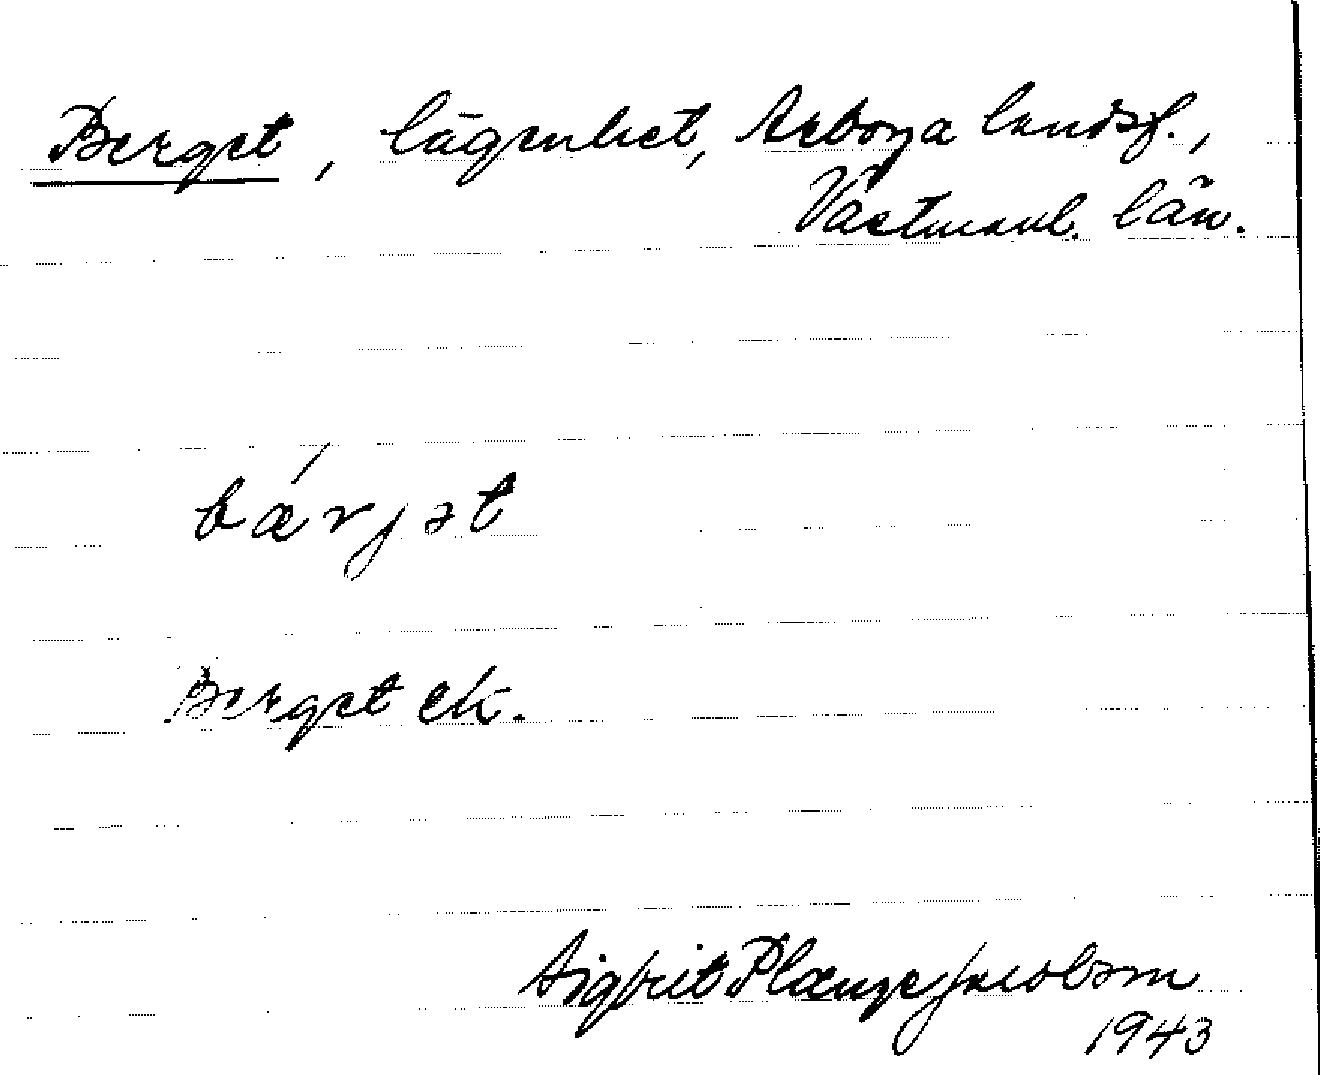 Berget, lägenhet, Arboga landsf.,
Västmanl. län.
bærjət
Berget ek.
Sigfrit Plænge Jacobson
1943